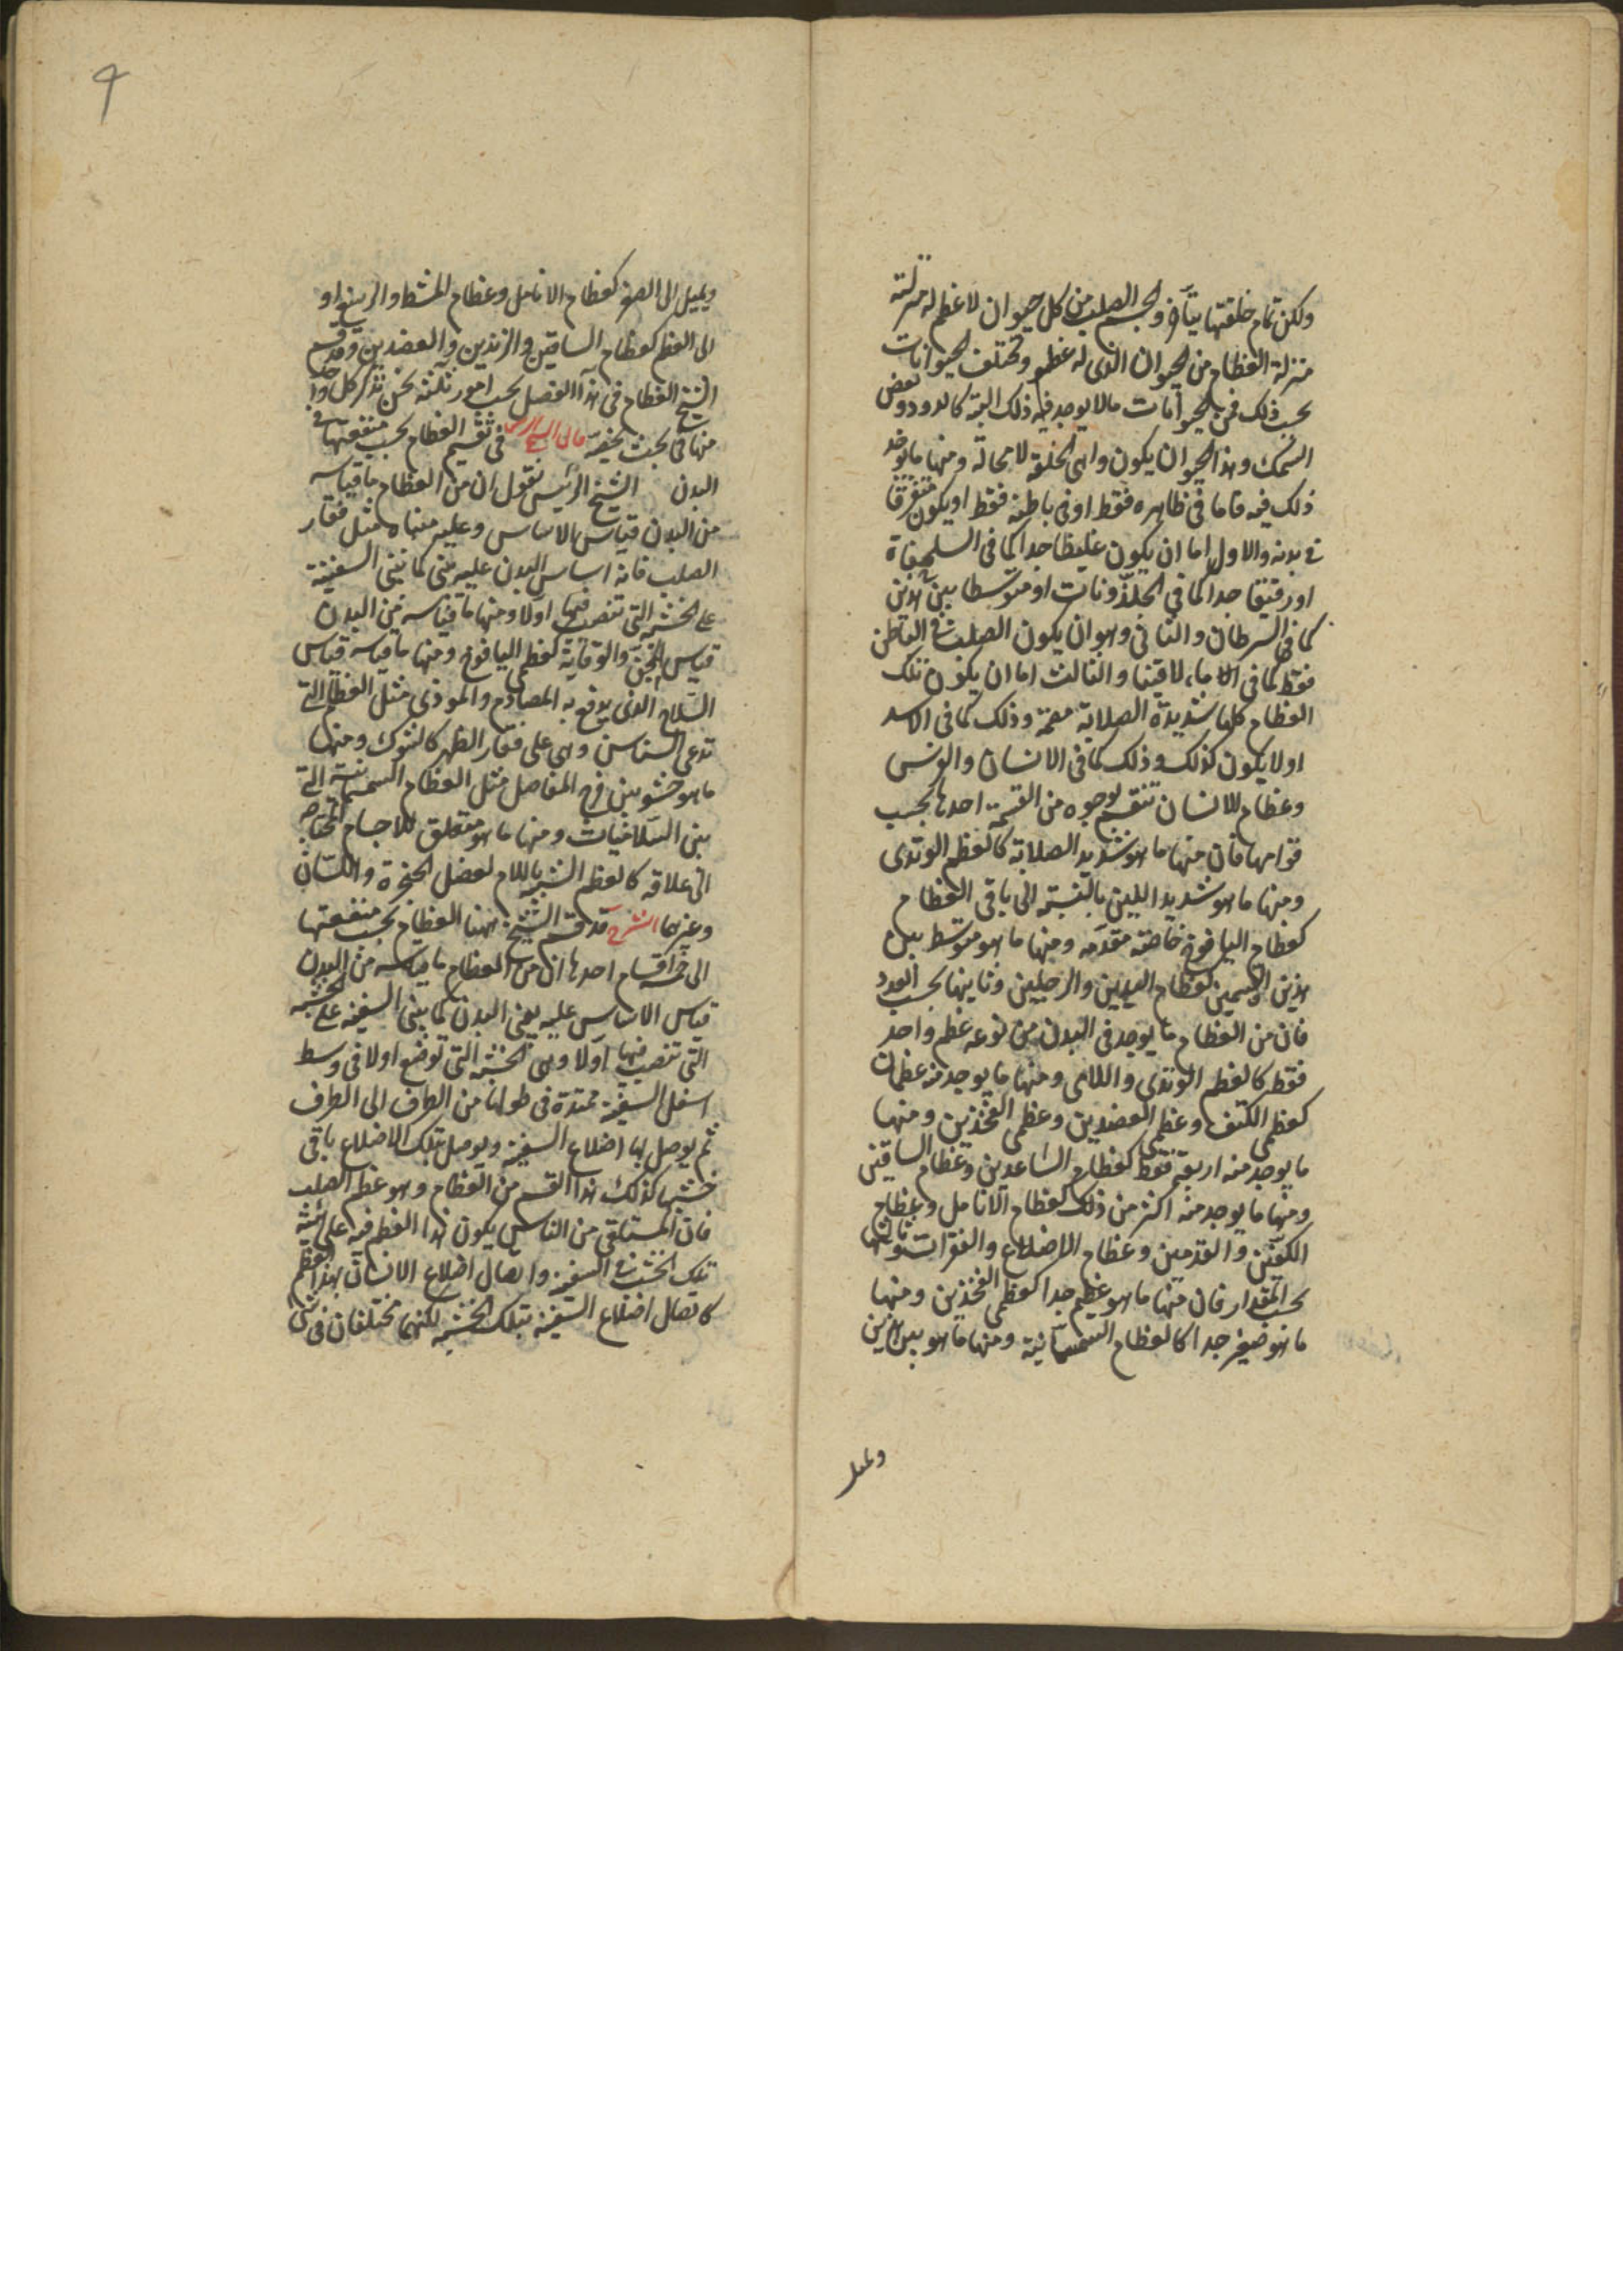 ولكن تمام خلقتها يتأخر والجسم الصلب من كل حيوان لا عظم له منزلته
منزلة العظام من الحيوان الذى له عظم وتختلف الحيوانات
بحسب ذلك فمن الحيوانات مالا يوجد فيه ذلك البتة كالدود وبعض
السمك وهذا الحيوان يكون واهى الخلقة لا محالة ومنها ما يوجد
ذلك فيه فاما فى ظاهره فقط او فى باطنه فقط او يكون متفرقا
فى بدنه والاول اما ان يكون غليظا جدا كما فى السلحفاة
او رقيقا جدا كما فى الحلزونات او متوسطا بين هذين
كما فى السرطان والثانى وهو ان يكون الصلب فى الباطن
فقط كما فى مالاقيا والثالث اما ان يكون تلك
العظام كلها شديدة الصلابة مصمتة وذلك كما فى الاسد
او لا يكون كذلك وذلك كما فى الانسان والفرس
وعظام الانسان تنقسم بوجوه من القسمة احدها بحسب
قوامها فان منها ما هو شديد الصلابة كالعظم الوتدى
ومنها ما هو شديد اللين بالنسبة الى باقى العظام
كعظام اليافوخ خاصة مقدمه ومنها ما هو متوسط بين
هذين القسمين كعظام اليدين والرجلين وثانيها بحسب العدد
فان من العظام ما يوجد فى البدن من نوعه عظم واحد
فقط كالعظم الوتدى واللامى ومنها ما يوجد منه عظمان
كعظمى الكتف وعظمى العضدين وعظمى الفخذين ومنها
ما يوجد منه اربعة فقط كعظام الساعدين وعظام الساقين
ومنها ما يوجد منه اكثر من ذلك كعظام الانامل وعظام
الكفين والقدمين وعظام الاضلاع والفقرات وثالثها
بحسب المقدار فان منها ما هو عظيم جدا كعظمى الفخذين ومنها
ما هو صغير جدا كالعظام السمسمانية ومنها ما هو بين هذين
ويميل
٩
ويميل الى الصغر كعظام الانامل وعظام المشط والرسغ او
الى العظم كعظام الساقين والزندين والعضدين وقد قسم
الشيخ العظام فى هذا الفصل بحسب امور ثلثة نحن نذكر كل واحد
منها فى بحث يخصه قال الشارح فى تقسيم العظام بحسب منفعتها فى
البدن الشيخ الرئيس نقول ان من العظام ما قياسه
من البدن قياس الاساس وعليه مبناه مثل فقار
الصلب فانه اساس البدن عليه يبنى كما تبنى السفينة
على الخشبة التى تنصب فيها اولا ومنها ما قياسه من البدن
قياس المجن والوقاية كعظم اليافوخ ومنها ما قياسه قياس
السلاح الذى يدفع به المصادم والموذى مثل العظام التى
تدعى السناسن وهى على فقار الظهر كالشوك ومنها
ما هو حشو بين فرج المفاصل مثل العظام السمسمانية التى
بين السلاميات ومنها ما هو متعلق للاجسام المحتاجة
الى علاقة كالعظم الشبيه باللام لعضل الحنجرة واللسان
وغيرها الشرح قد قسم الشيخ ههنا العظام بحسب منفعتها
الى خمسة اقسام احدها ان من العظام ما قياسه من البدن
قياس الاساس عليه يبنى البدن كما يبنى السفينة على الخشبة
التى تنصب فيها اولا وهى الخشبة التى توضع اولا فى وسط
اسفل السفينة ممتدة فى طولها من الطرف الى الطرف
ثم يوصل بها اضلاع السفينة ويوصل بتلك الاضلاع باقى
خشبها كذلك هذا القسم من العظام وهو عظم الصلب
فان المستلقى من الناس يكون هذا العظم فيه على هيئة
تلك الخشبة فى السفينة واتصال اضلاع الانسان بهذا العظم
كاتصال اضلاع السفينة بتلك الخشبة لكنهما مختلفان فى شئ